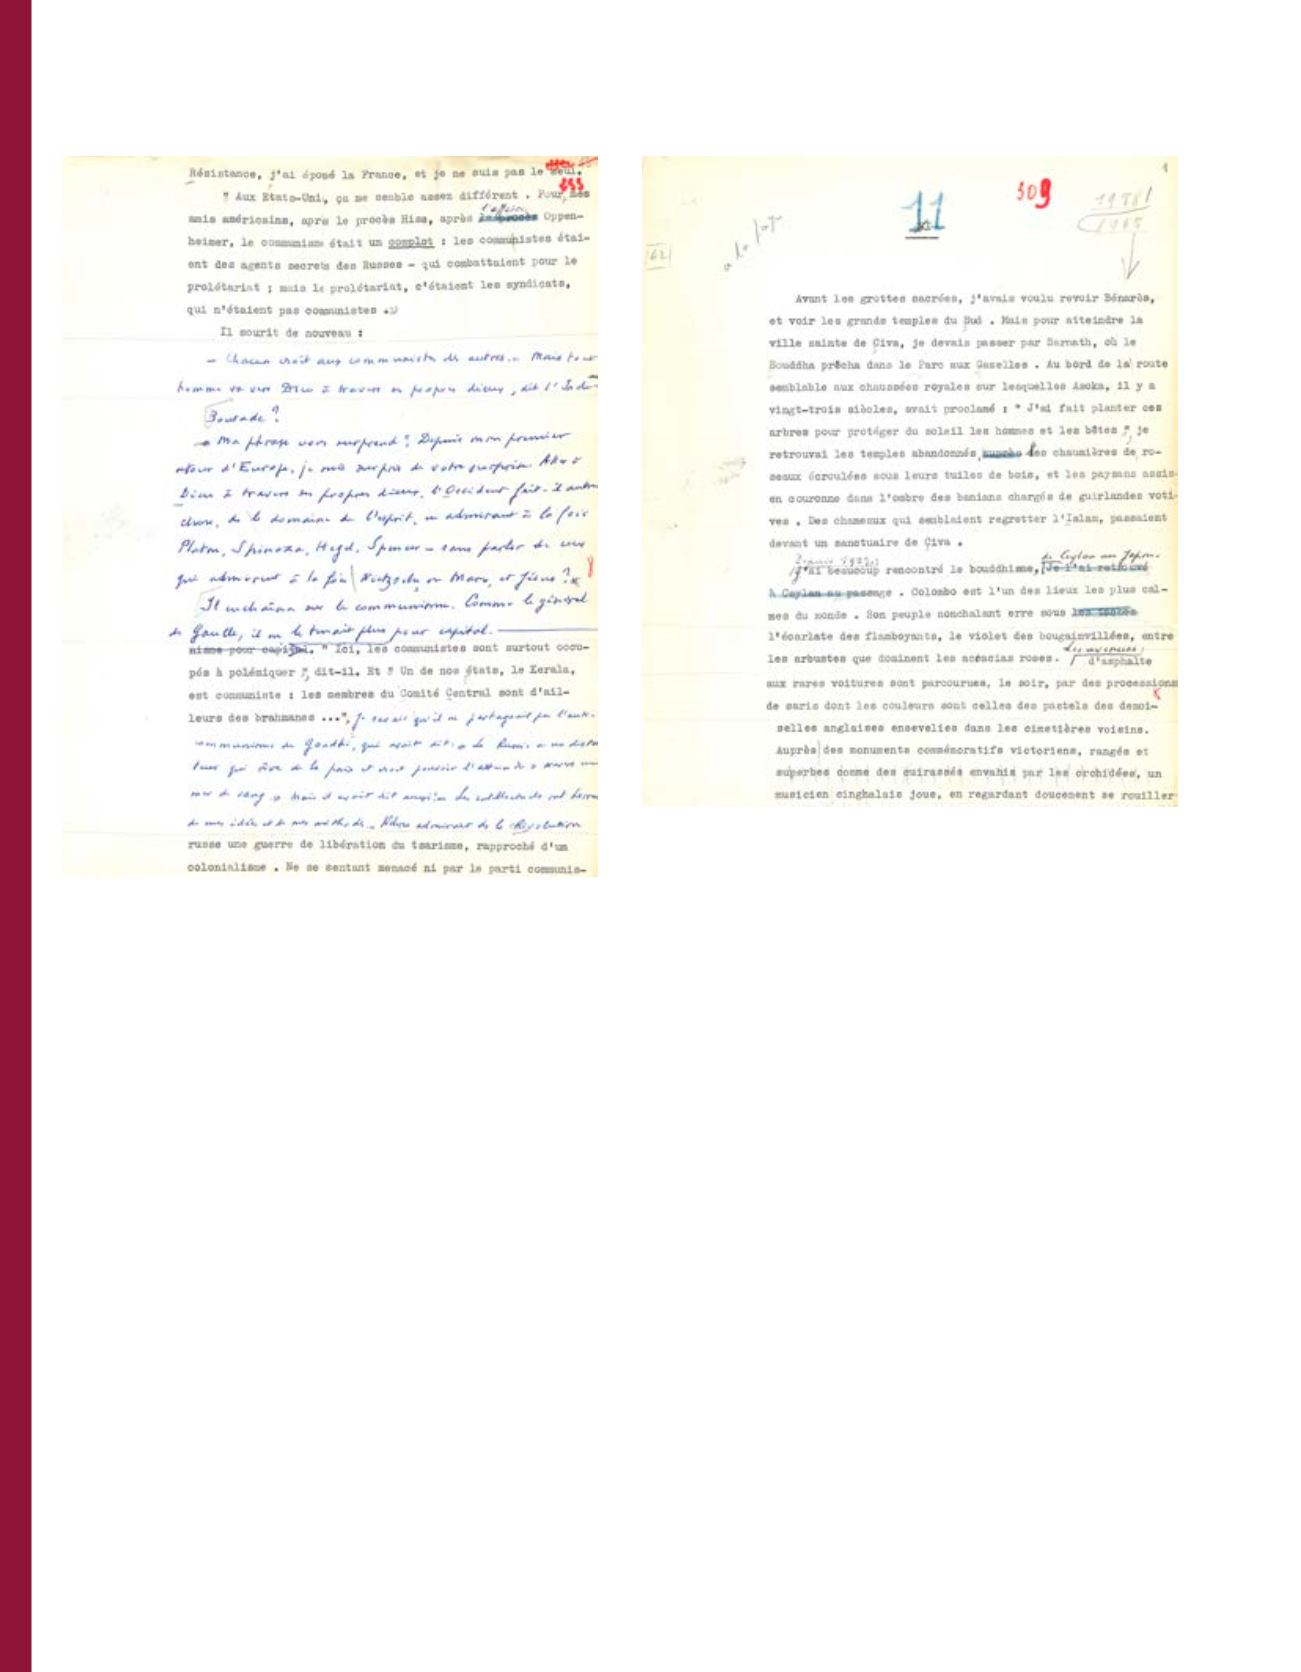 Résistance, j'ai épousé la France, et je ne suis pas le seul.
" Aux Etats-Uni, ça me semble assez différent . Pour mes
amis américains, après le procès Hiss, après l'affaire Oppen-
heimer, le communisme était un complot : les communistes étai-
ent des agents secrets des Russes - qui combattaient pour le
prolétariat ; mais le prolétariat, c'étaient les syndicats,
qui n'étaient pas communistes .»
Il sourit de nouveau :
- Chacun croit aux communistes des autres. Mais tout
homme va vers Dieu à travers ses propres dieux, dit l'Inde
Boutade ?
- Ma phrase vous surprend ? Depuis mon premier
retour d'Europe, je suis surpris de votre surprise. Aller à
Dieu à travers ses propres dieux, l'Occident fait-il autre
chose, dans le domaine de l'esprit, en admirant à la fois
Platon, Spinoza, Hegel, Spencer - sans parler de ceux
qui admirent à la fois Nietzsche ou Marx, et Jésus ?
Il enchaîna sur le communisme. Comme le général
de Gaulle, il ne le tenait plus pour capital.
nisme pour capital. " Ici, les communistes sont surtout occu-
pés à polémiquer ", dit-il. Et " Un de nos états, le Kerala,
est communiste : les membres du Comité Central sont d'ail-
leurs des brahmanes ...", je savais qu'il ne partageait pas l'anti-
communisme de Gandhi, qui avait dit : la Russie a un dicta
teur qui rêve de la paix et croit pouvoir l'atteindre à travers une
mer de sang, mais il avait dit aussi : les intellectuels ont
de mes idées et de mes méthodes. Nehru admirait de la Révolution
russe une guerre de libération du tsarisme, rapproché d'un
colonialisme . Ne se sentant menacé ni par le parti communis-
1
309
11
1958/
1965
62
Avant les grottes sacrées, j'avais voulu revoir Bénarès,
et voir les grands temples du Sud . Mais pour atteindre la
ville sainte de Çiva, je devais passer par Sarnath, où le
Bouddha prêcha dans le Parc aux Gazelles . Au bord de la route
semblable aux chaussées royales sur lesquelles Asoka, il y a
vingt-trois siècles, avait proclamé : " J'ai fait planter ces
arbres pour protéger du soleil les hommes et les bêtes ", je
retrouvai les temples abandonnés, auprès des chaumières de ro-
seaux écroulées sous leurs tuiles de bois, et les paysans assis
en couronne dans l'ombre des banians chargés de guirlandes voti-
ves . Des chameaux qui semblaient regretter l'Islam, passaient
devant un sanctuaire de Çiva .
de Ceylan au Japon.
J'ai beaucoup rencontré le bouddhisme, Je l'ai retrouvé
à Ceylan au passage . Colombo est l'un des lieux les plus cal-
mes du monde . Son peuple nonchalant erre sous
l'écarlate des flamboyants, le violet des bougainvillées, entre
les arbustes que dominent les acacias roses. Les avenues d'asphalte
aux rares voitures sont parcourues, le soir, par des processions
de saris dont les couleurs sont celles des pastels des demoi-
selles anglaises ensevelies dans les cimetières voisins.
Auprès des monuments commémoratifs victoriens, rangés et
superbes comme des cuirassés envahis par les orchidées, un
musicien cinghalais joue, en regardant doucement se rouiller